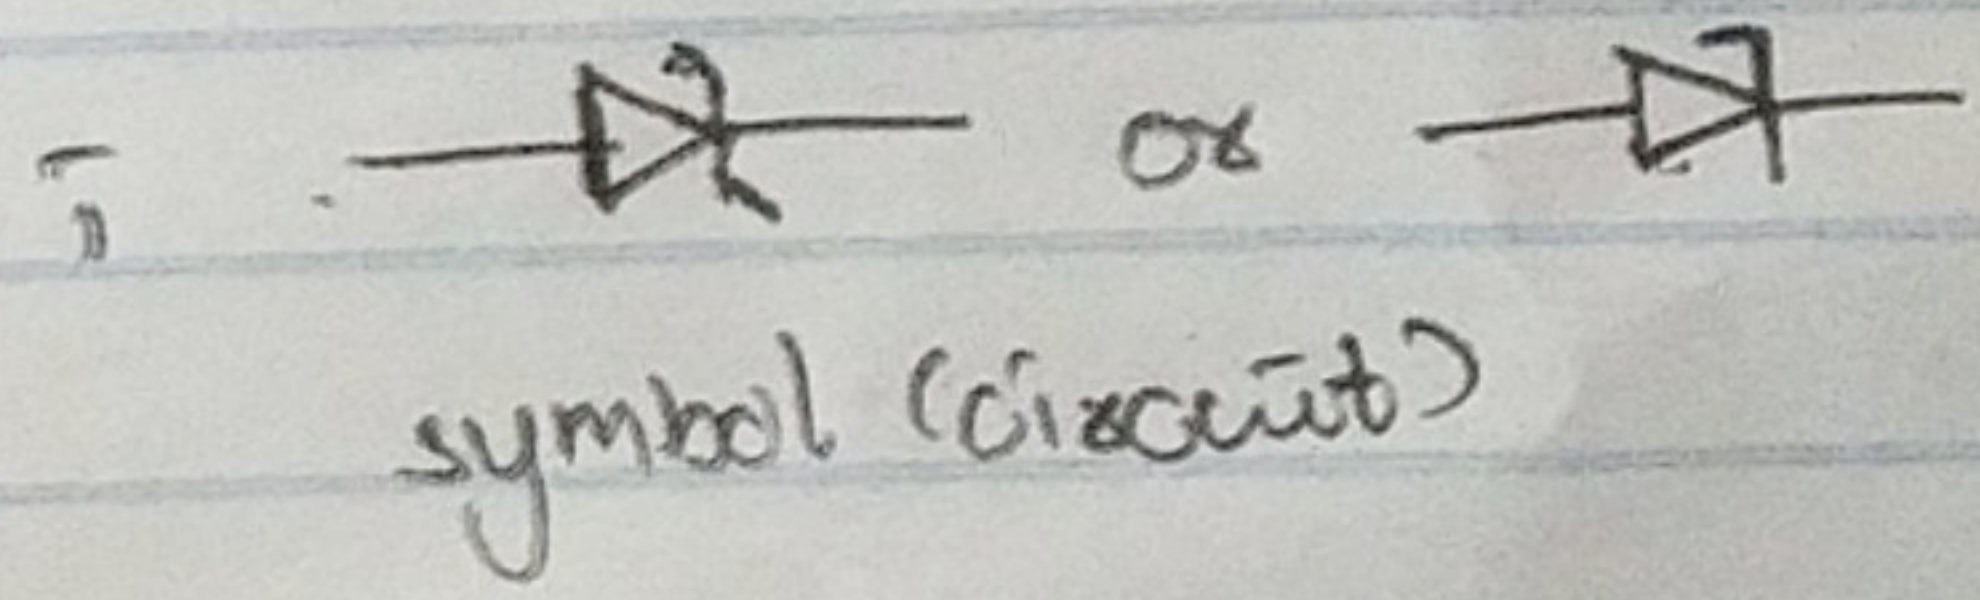 or
symbol (circuit)